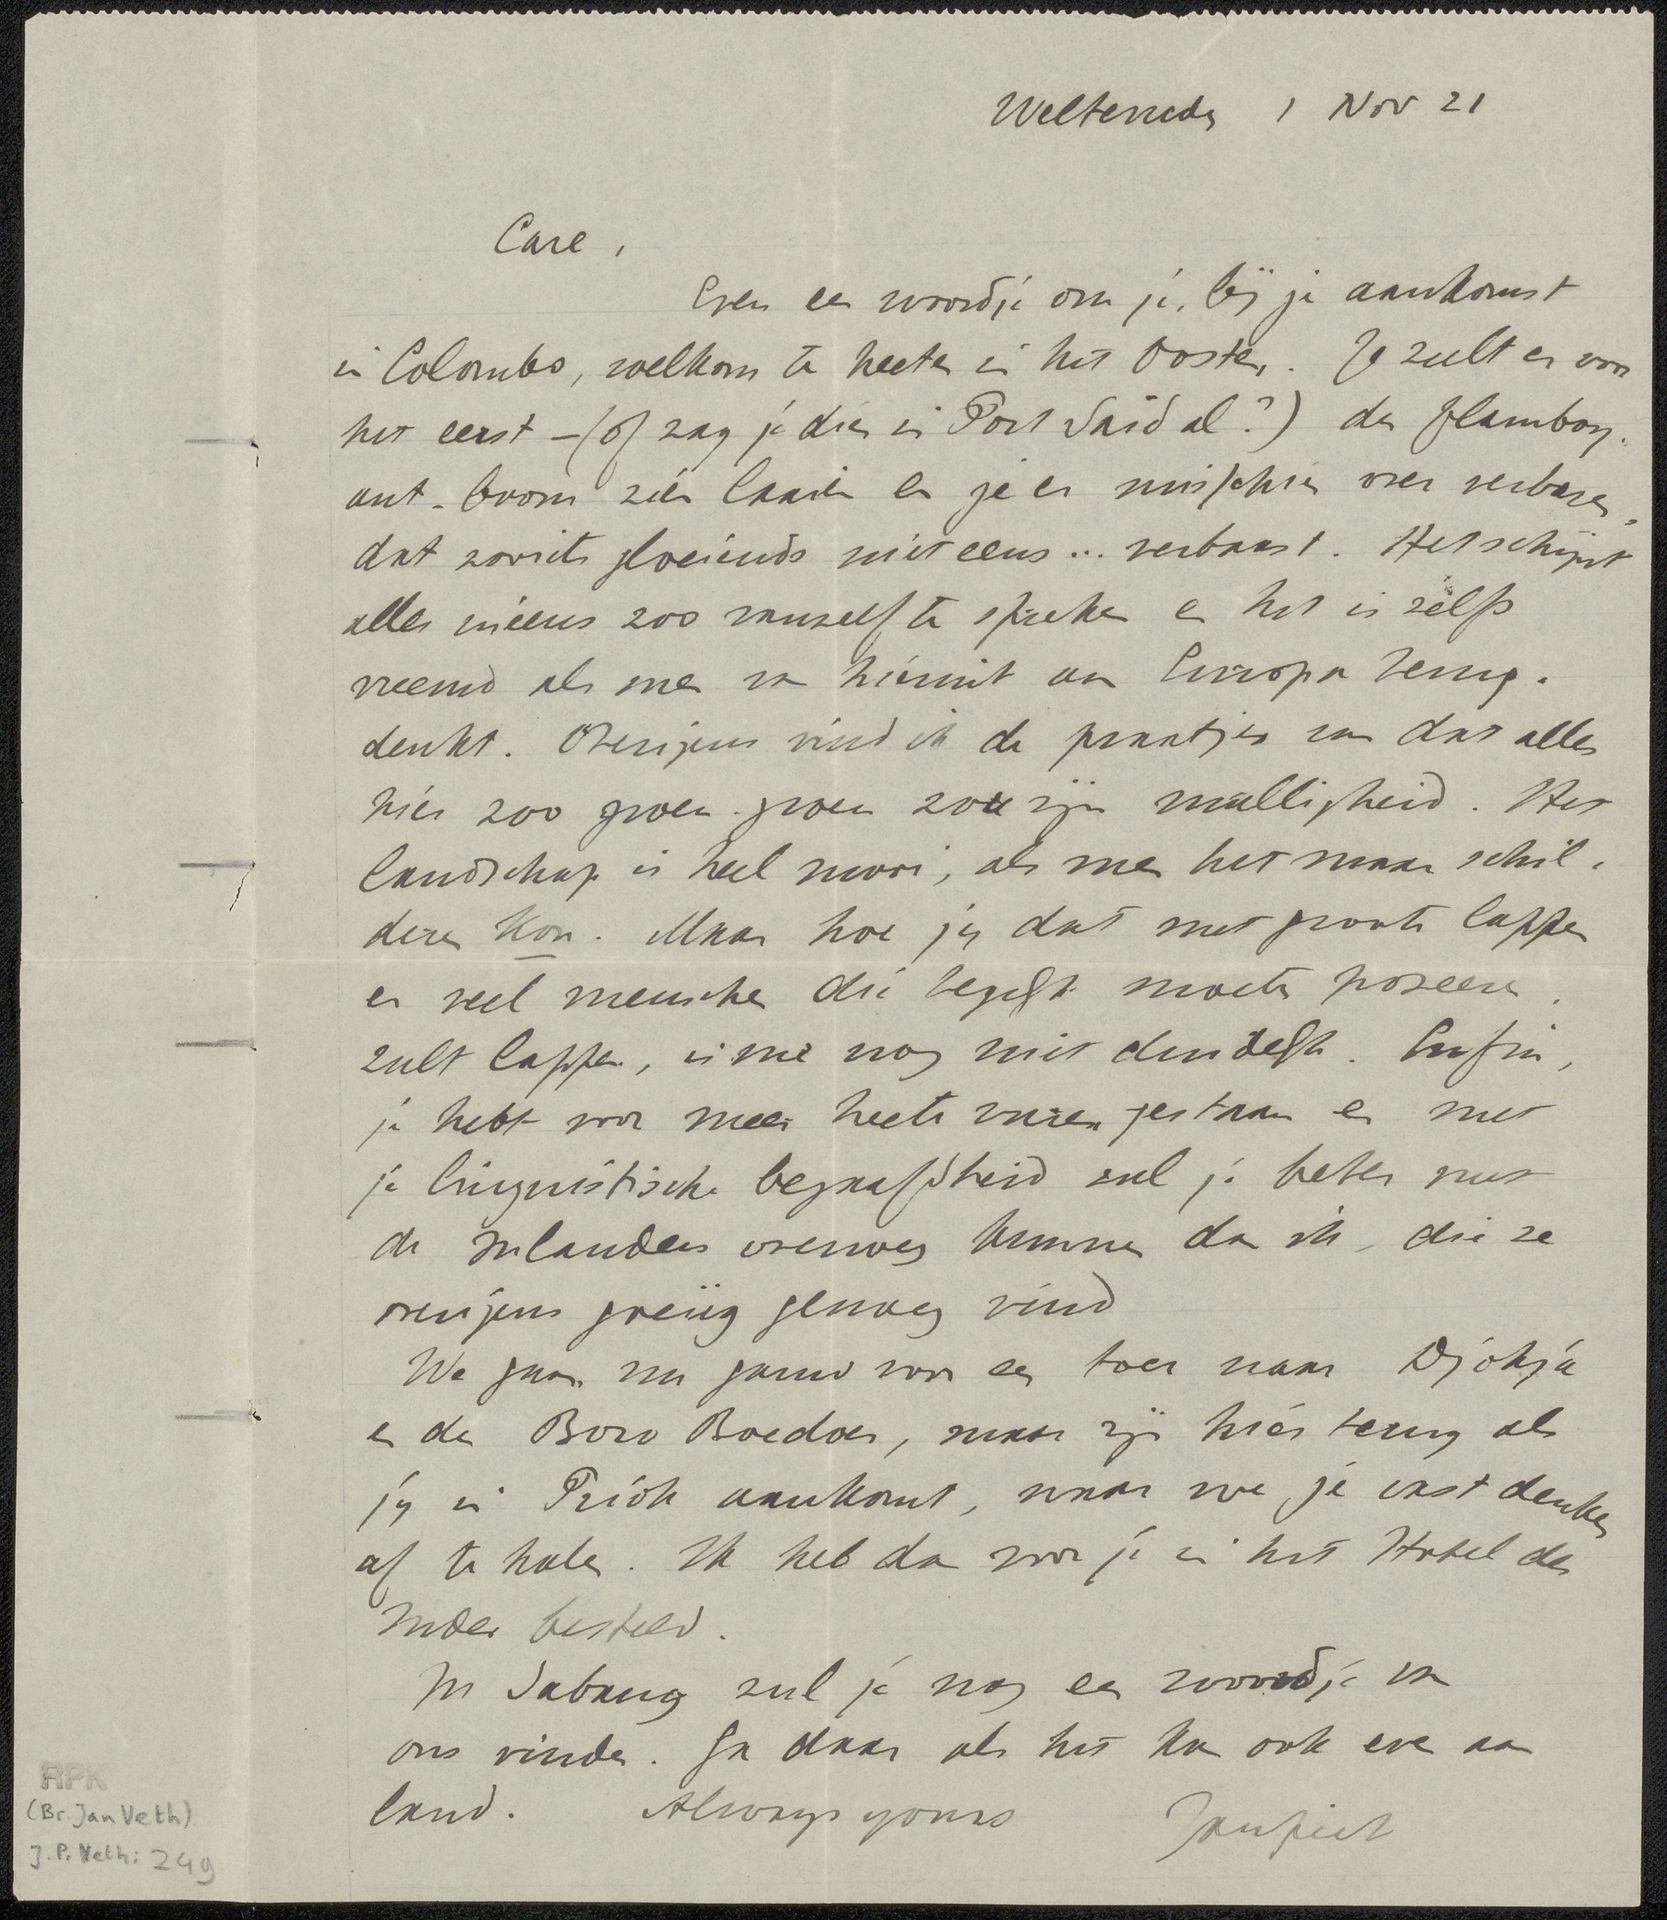 Weltevreden 1 Nov 21
Care,
Even een woordje om je, bij je aankomst
in Colombo, welkom te heeten in het Oosten. Je zult er voor
het eerst – (of zag je dien in Port Saïd al?) den flamboy-
ant-boom zien laaien en je er misschien over verbazen,
dat zooiets gloeiends niet eens ... verbaast. Het schijnt
alles ineens zoo vanzelf te spreken en het is zelfs
vreemd als men van hieruit aan Europa terug-
denkt. Overigens vind ik de praatjes van dat alles
hier zoo groen-groen zou zijn malligheid. Het
landschap is heel mooi, als men het maar schil-
deren kon. Maar hoe jij dat met groote lappen
en veel menschen die tegelijk moeten poseeren
zult lappen, is me nog niet duidelijk. Enfin,
je hebt voor meer heete vuren gestaan en met
je linguistische begaafdheid zul je beter met
de Inlanders overweg kunnen dan ik, die ze
overigens goeiig genoeg vind
We gaan nu gauw voor een toer naar Djokja
en den Boro Boedoer, maar zijn hier terug als
jij in Priok aankomt, waar we je vast denken
af te halen. Ik heb dan voor je in het Hotel des
Indes besteld.
In Sabang zul je nog een woordje van
ons vinden. Ga daar als het kan ook even aan
land. Always yours Janpiet
RPK
(Br. Jan Veth)
J. P. Veth: 249